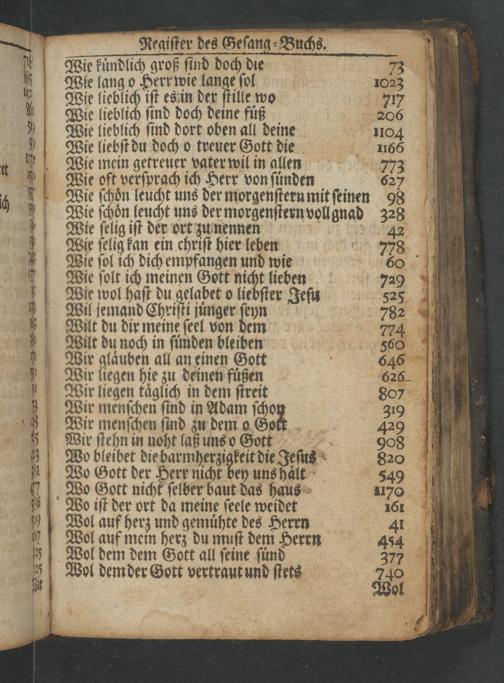 Register des Gesang-Buchs.
Wie kündlich groß sind doch die 73
Wie lang o Herr wie lange sol 1023
Wie lieblich ist es in der stille wo 717
Wie lieblich sind doch deine füß 206
Wie lieblich sind dort oben all deine 1104
Wie liebst du doch o treuer Gott die 1166
Wie mein getreuer vater wil in allen 773
Wie oft versprach ich Herr von sünden 627
Wie schön leucht uns der morgenstern mit seinen 98
Wie schön leucht uns der morgenstern voll gnad 328
Wie selig ist der ort zu nennen 42
Wie selig kan ein christ hier leben 778
Wie sol ich dich empfangen und wie 60
Wie solt ich meinen Gott nicht lieben 729
Wie wol hast du gelabet o liebster Jesu 525
Wil jemand Christi jünger seyn 782
Wilt du dir meine seel von dem 774
Wilt du noch in sünden bleiben 560
Wir gläuben all an einen Gott 646
Wir liegen hie zu deinen füßen 626
Wir liegen täglich in dem streit 807
Wir menschen sind in Adam schon 319
Wir menschen sind zu dem o Gott 429
Wir stehn in noht laß uns o Gott 908
Wo bleibet die barmherzigkeit die Jesus 820
Wo Gott der Herr nicht bey uns hält 549
Wo Gott nicht selber baut das haus 1170
Wo ist der ort da meine seele weidet 161
Wol auf herz und gemühte des Herrn 41
Wol auf mein herz du must dem Herrn 454
Wol dem dem Gott all seine sünd 377
Wol dem der Gott vertraut und stets 740
Wol